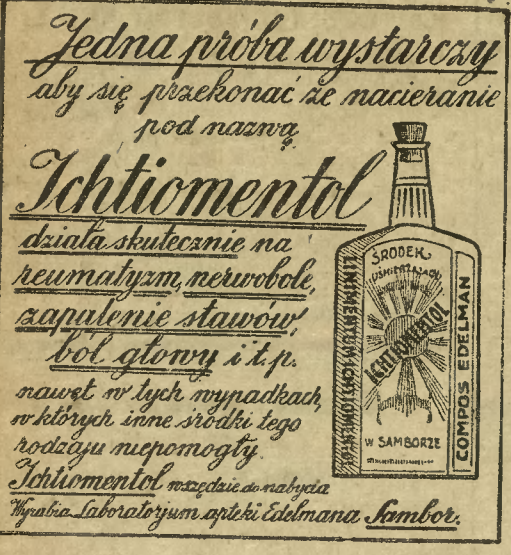 Jedna próba wystarczy
aby się przekonać że nacieranie
pod nazwą
Ichtiomentol
działa skutecznie na
reumatyzm, nerwobole,
zapalenie stawów,
ból głowy i t. p.
nawet w tych wypadkach,
w których inne środki tego
rodzaju niepomogły.
Ichtiomentol wszędzie do nabycia
Wyrabia Laboratorjum apteki Edelmana Sambor.
ŚRODEK
UŚMIERZAJĄCY
ICHTIOMENTOL
W SAMBORZE
COMPOS EDELMAN